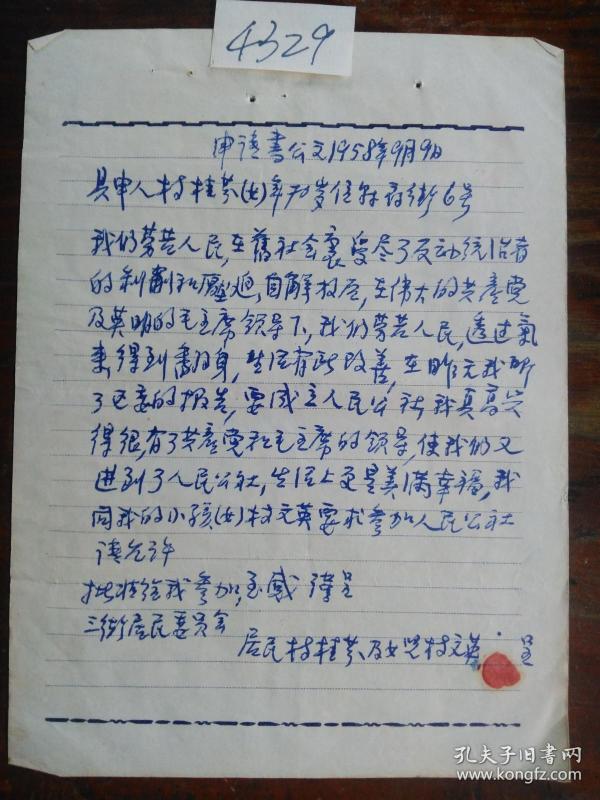 4329
申请書公文1958年9月9日
具申人村桂芬(女)年70岁住 街6号
我们劳苦人民,在舊社会裏,受尽了反动统治者
的剥削和壓迫,自解放后,在伟大的共產党
及英明的毛主席领导下,我们劳苦人民,透过氣
来得到翻身,生活有所改善,在昨天我听
了区委的报告,要成立人民公社,我真高兴
得很,有了共產党和毛主席的领导,使我们又
进到了人民公社,生活上更是美满幸福,我
同我的小孩(女)村文英要求参加人民公社
请允许
批准给我参加,至感 謹呈
三街居民委员会
居民村桂芬及女児村文英 呈
孔夫子旧书网
www.kongfz.com